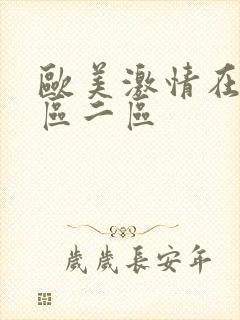 歐美激情在
區二區
歲歲長安年